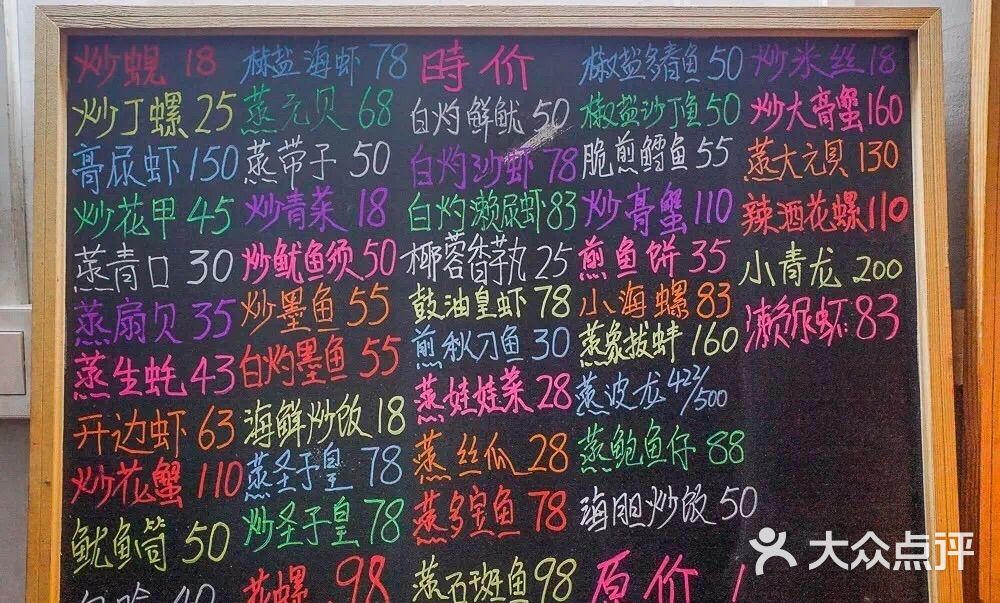 炒蚬 18
炒丁螺 25
膏尿虾 150
炒花甲 45
蒸青口 30
蒸扇贝 35
蒸生蚝 43
开边虾 63
炒花蟹 110
鱿鱼筒 50
40
椒盐海虾 78
蒸元贝 68
蒸带子 50
炒青菜 18
炒鱿鱼须 50
炒墨鱼 55
白灼墨鱼 55
海鲜炒饭 18
蒸圣子皇 78
炒圣子皇 78
花螺 98
時价
白灼鲜鱿 50
白灼沙虾 78
白灼濑尿虾 83
椰蓉香芋丸 25
鼓油皇虾 78
煎秋刀鱼 30
蒸娃娃菜 28
蒸丝瓜 28
蒸多宝鱼 78
蒸石斑鱼 98
椒盐多春鱼 50
椒盐沙丁鱼 50
脆煎鳕鱼 55
炒膏蟹 110
煎鱼饼 35
小海螺 83
蒸象拔蚌 160
蒸波龙 422/500
蒸鲍鱼仔 88
海胆炒饭 50
原价 1
炒米丝 18
炒大膏蟹 160
蒸大元贝 130
辣酒花螺 110
小青龙 200
濑尿虾: 83
大众点评